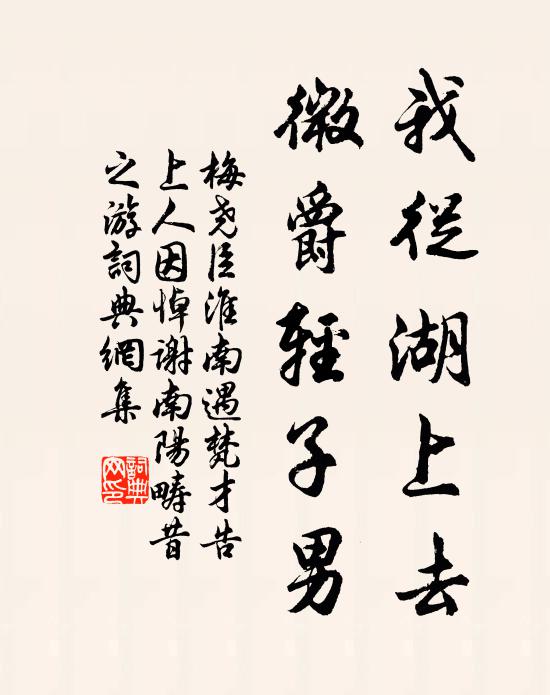 我從湖上去
微爵輕子男
梅尧臣淮南遇梵才告
上人因悼谢南陽畴昔
之游詞典網集
詞典網印